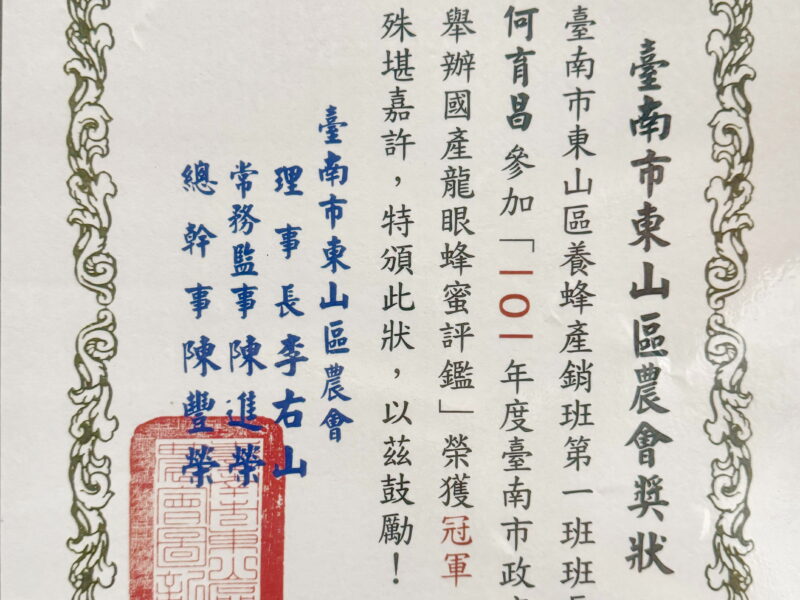 臺南市東山區農會獎狀
臺南市東山區養蜂產銷班第一班班長
何育昌參加「一〇一年度臺南市政
舉辦國產龍眼蜂蜜評鑑」榮獲冠軍
殊堪嘉許，特頒此狀，以茲鼓勵！
臺南市東山區農會
理事長李右山
常務監事陳進榮
總幹事陳豐榮